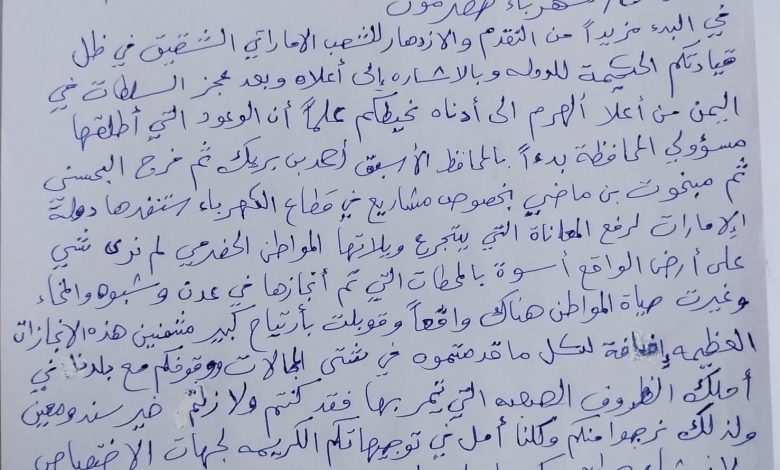 كهرباء حضرموت
في البدء مزيداً من التقدم والازدهار للشعب الاماراتي الشقيق في ظل
قيادتكم الحكيمة للدوله وبالاشاره إلى أعلاه وبعد عجز السلطات في
اليمن من أعلا الهرم الى أدناه نحيطكم علماً أن الوعود التي أطلقها
مسؤولي المحافظة بدءاً بالمحافظ الأسبق أحمد بن بريك ثم فرج البحسني
ثم مبخوت بن ماضي بخصوص مشاريع في قطاع الكهرباء ستنفذها دولة
الإمارات لرفع المعاناة التي يتجرع ويلاتها المواطن الحضرمي لم نرى شي
على أرض الواقع أسوة بالمحطات التي تم أنجازها في عدن وشبوه والمخاء
وغيرت حياة المواطن هناك واقعاً وقوبلت بأرتياح كبير مثمنين هذه الانجازات
العظيمه إضافة لكل ما قدمتموه في شتى المجالات ووقوفكم مع بلدنا في
أحلك الظروف الصعبه التي تمر بها فقد كنتم ولا زلتم خير سند ومعين
ولذلك نرجوا منكم وكلنا أمل في توجيهاتكم الكريمه لجهات الاختصاص